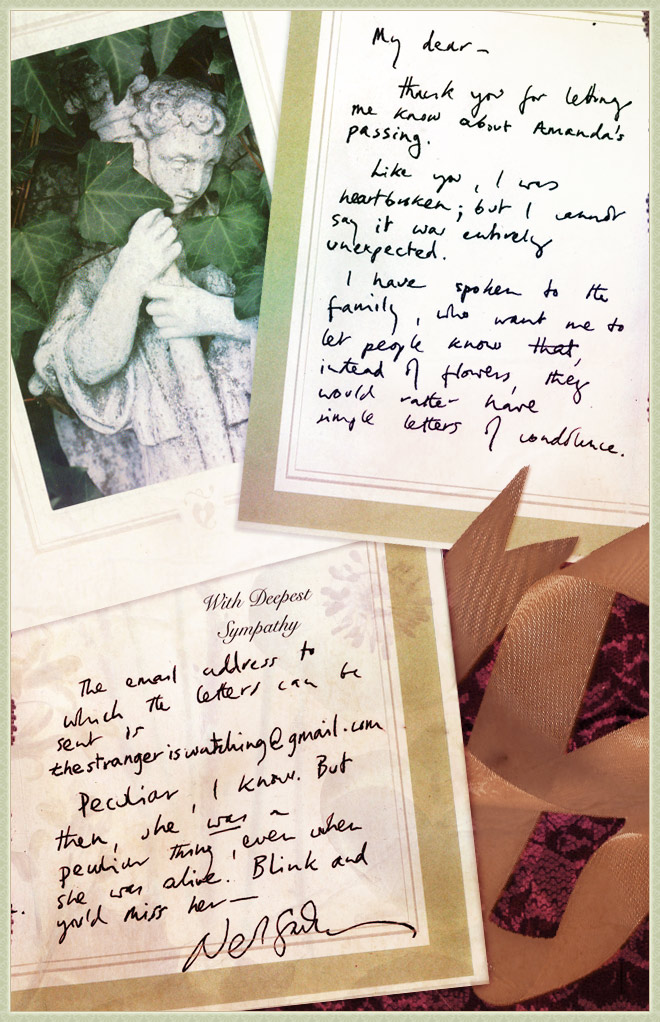 My dear–
Thank you for letting
me know about Amanda's
passing.
Like you, I was
heartbroken; but I cannot
say it was entirely
unexpected.
I have spoken to the
family, who want me to
let people know that,
instead of flowers, they
would rather have
simple letters of condolence.
With Deepest
Sympathy
The email address to
which the letters can be
sent is
thestrangeriswatching@gmail.com
Peculiar, I know. But
then, she was a
peculiar thing, even when
she was alive. Blink and
you'd miss her—